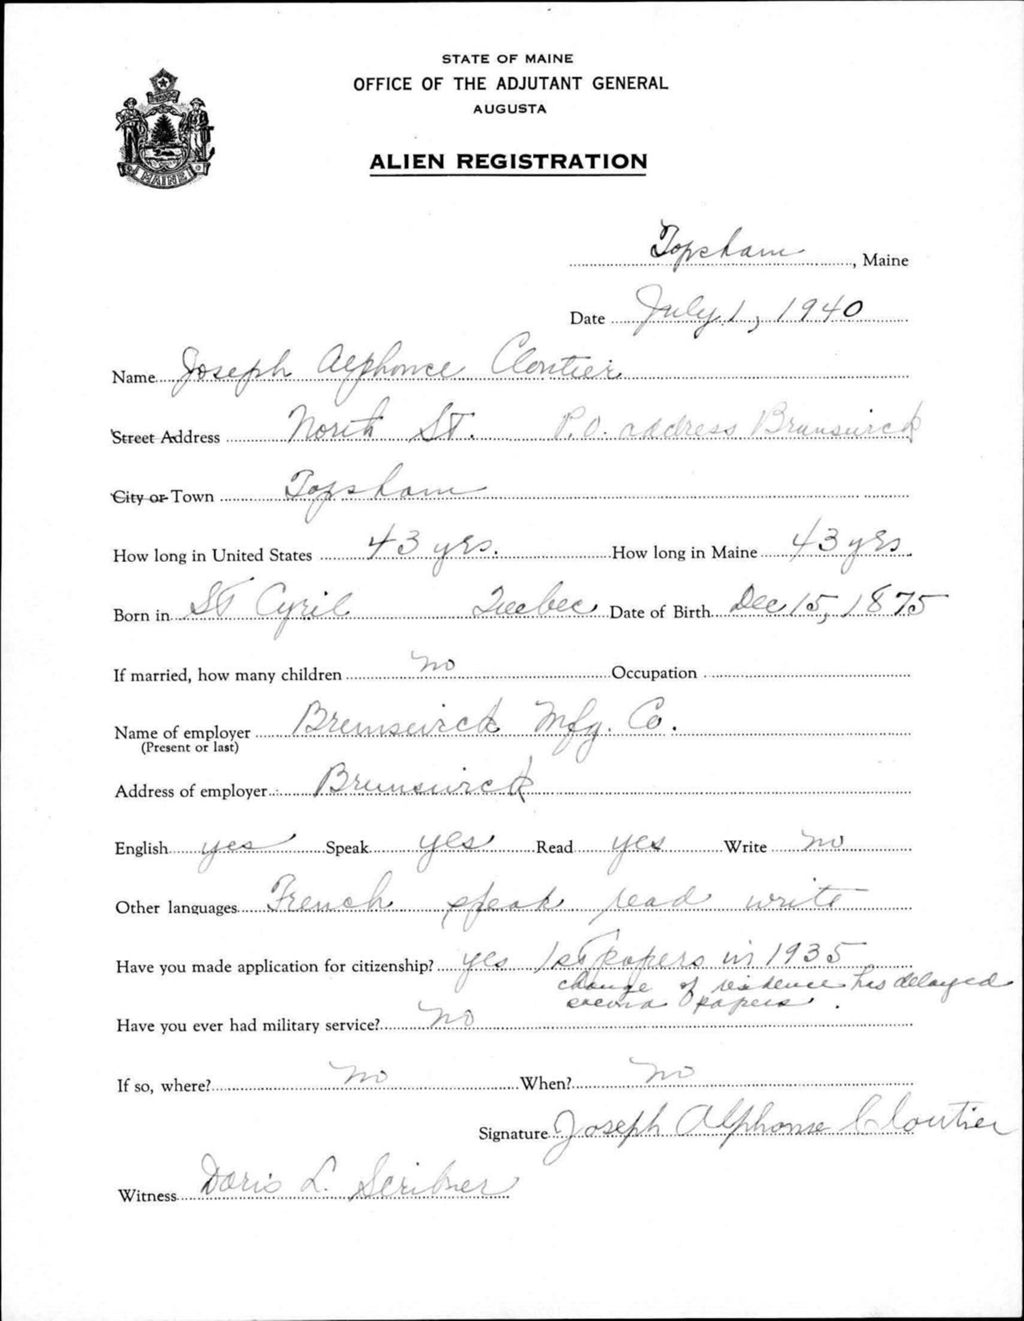 STATE OF MAINE
OFFICE OF THE ADJUTANT GENERAL
AUGUSTA
ALIEN REGISTRATION
MAINE
Topsham, Maine
Date July 1, 1940
Name Joseph Alphonce Cloutier
Street Address North St. P.O. address Brunswick
City or Town Topsham
How long in United States 43 yrs. How long in Maine 43 yrs.
Born in St Cyril Quebec Date of Birth Dec 15, 1875
If married, how many children no Occupation
Name of employer Brunswick Mfg. Co.
(Present or last)
Address of employer Brunswick
English yes Speak yes Read yes Write no
Other languages French speak read write
Have you made application for citizenship? yes 1st papers in 1935
change of residence has delayed
second papers.
Have you ever had military service? no
If so, where? no When? no
Signature Joseph Alphonse Cloutier
Witness Doris L. Scribner